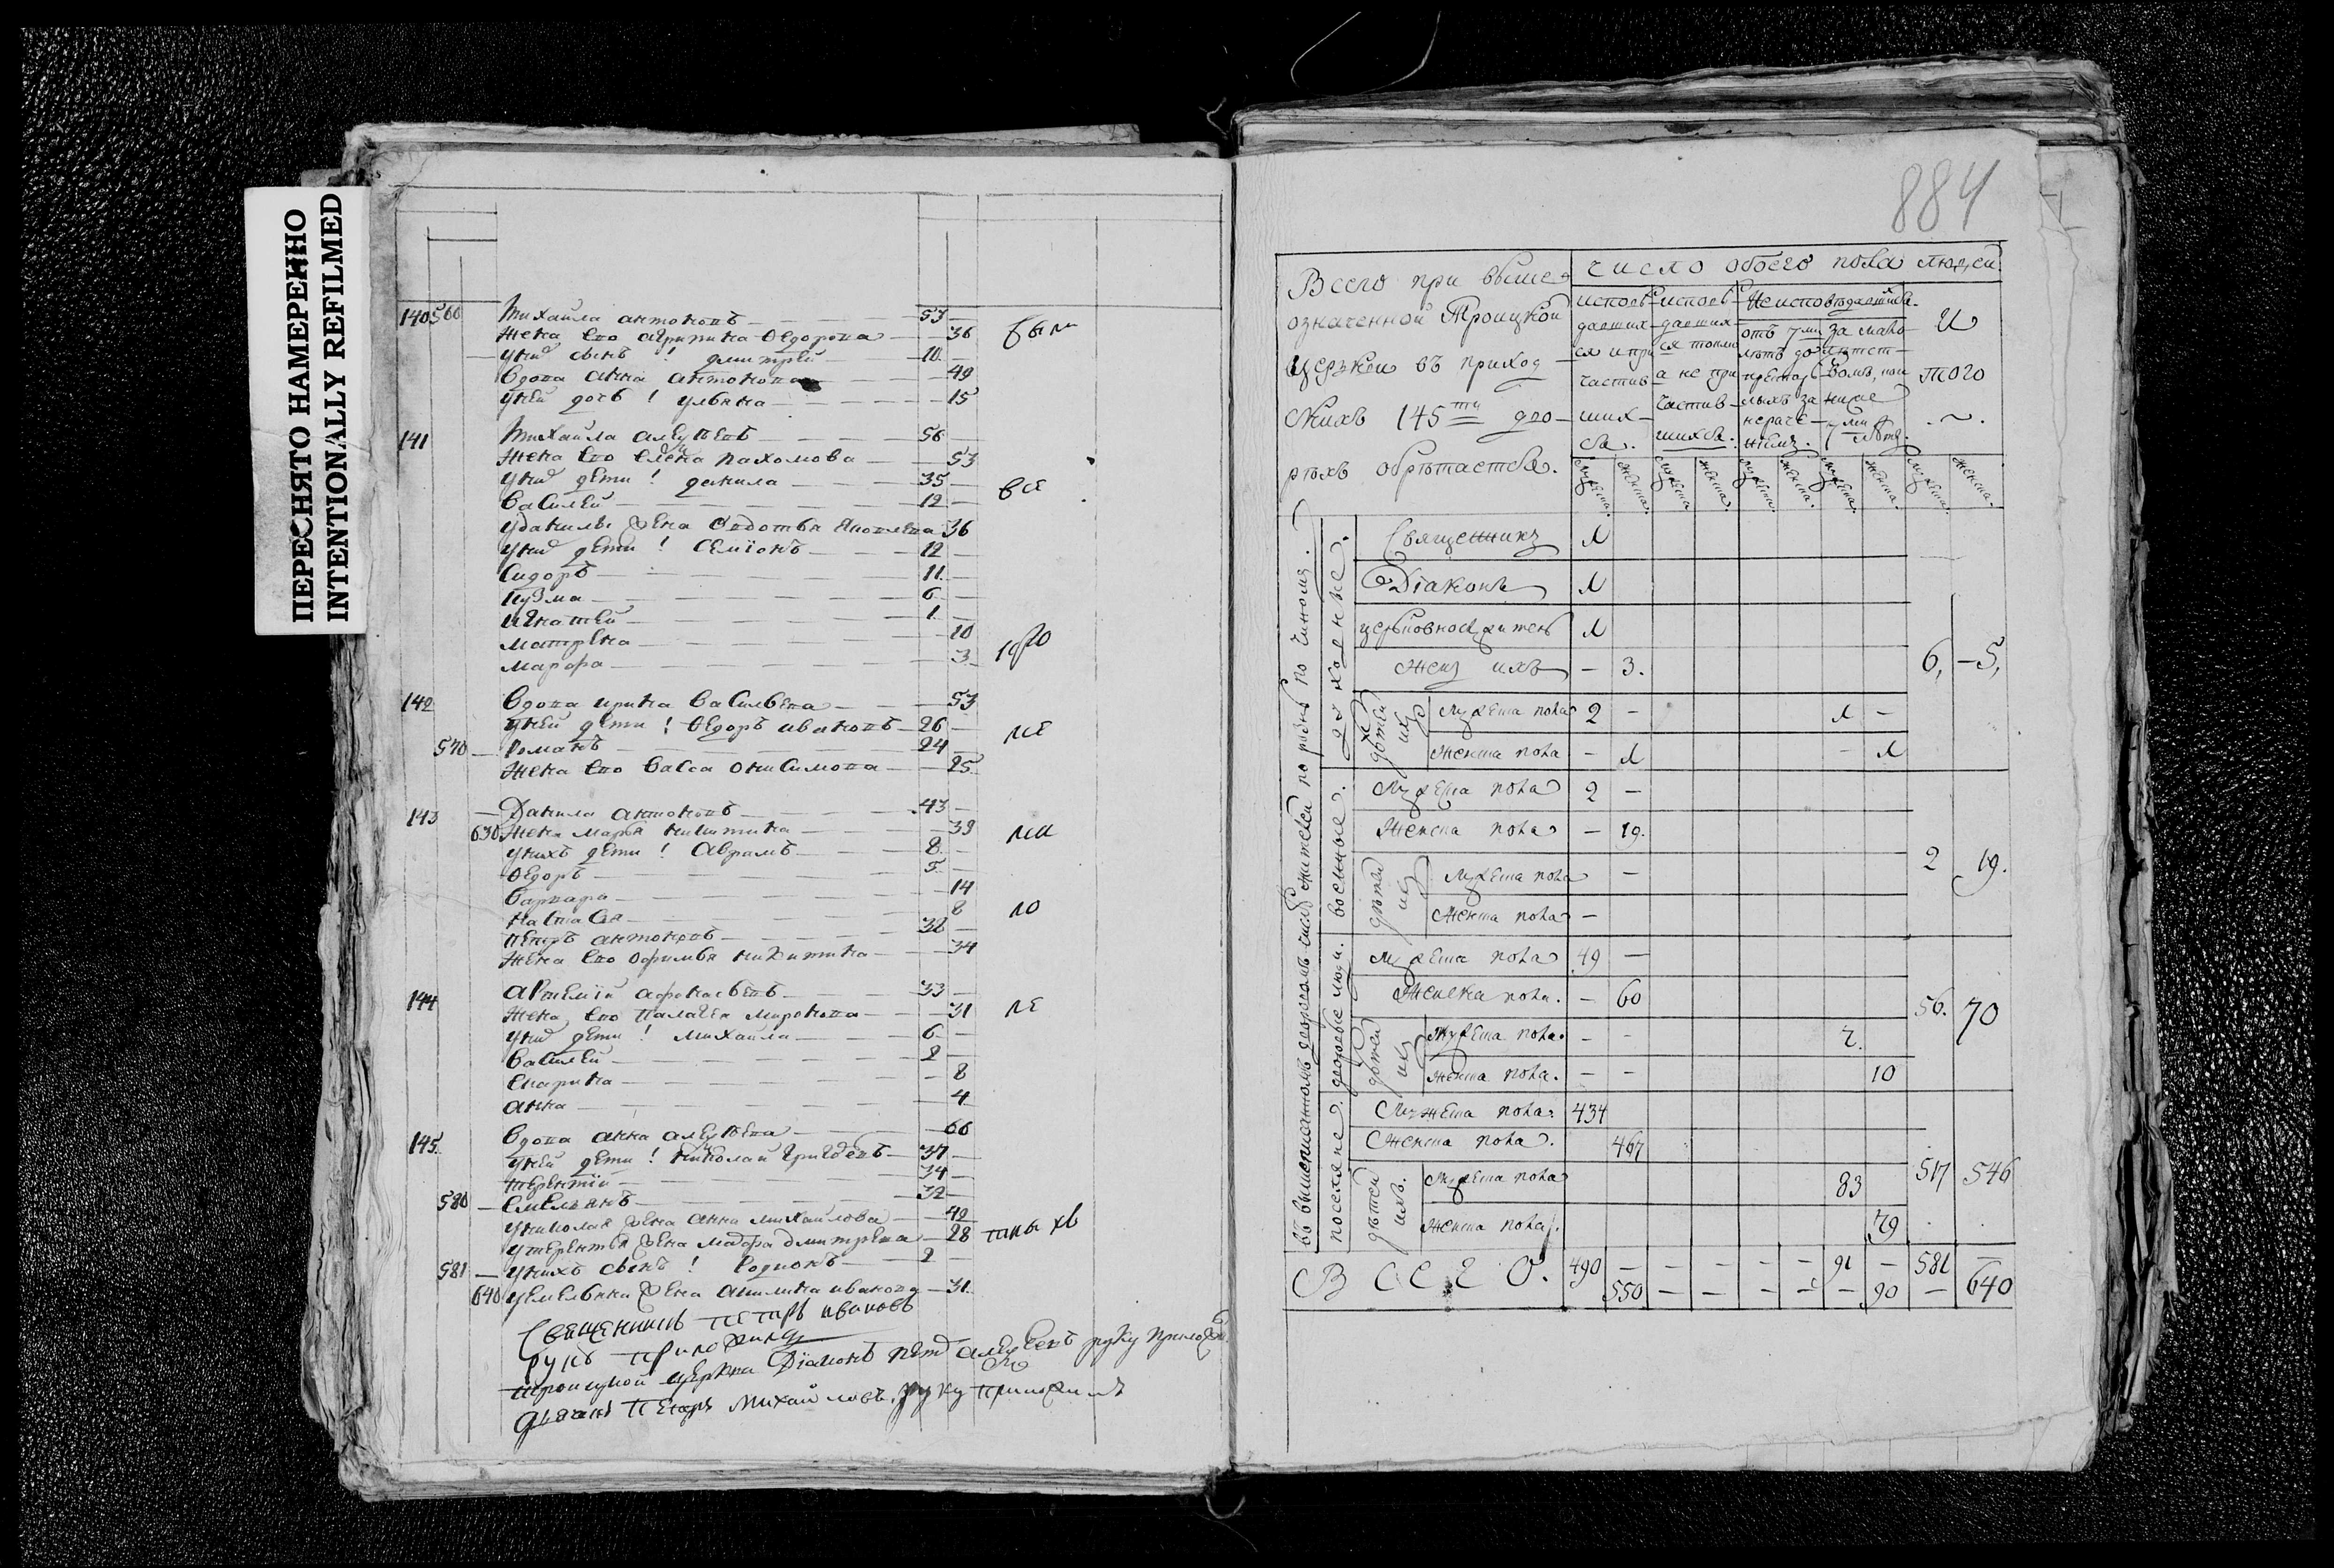 ПЕРЕСНЯТО НАМЕРЕННО
INTENTIONALLY REFILMED
140 566 Михаила антоновъ 53
жена Его агрипина Федорова 36 были
уних сынъ ! дмитрей 10
вдова анна антонова 49
уней дочь ! ульяна 15
141 Михаила алеѯѣевъ 56
жена Его Елена пахомова 53
уних дети ! данила 35 все
василей 12
уданилы жена Федотья 36
уних дети ! семионъ 12
сидоръ 11
кузма 6
игнатей 1
матрена 10
марфа 3
142 вдова ирина васильева 53
уней дети ! Федоръ ивановъ 26 не
570 романъ 24
жена Его васса онисимова 25
143 Данила антоновъ 43
630 жена марья никитина 39
унихъ дети ! аврамъ 8
Федоръ 5
варвара 14
настасья 8 ло
петръ антоновъ 38
жена Его офимья никитина 34
144 артемiй афонасьевъ 33
жена Его палагея миронова 31
уних дети ! михаила 6
василей 2
Екатерина 8
анна 4
145 вдова анна алеѯѣева 66
уней дети ! николай 37
терентiй 34
580 Емельянъ 32
униколая жена анна михаилова 42
утерентья жена марфа дмитрева 28
581 унихъ сынъ ! родионъ 2
640 уемельяна жена акилина иванова 31
Священникъ петръ ивановъ
руку приложилъ
троицкой церкви Дiаконъ петръ алеѯѣевъ руку приложилъ
дьячекъ петръ михайловъ руку приложилъ
884
Всего при выше
означенной Троицкой
церькви въ приход
скихъ 145ти дво
рѣхъ обрѣтается.
число обоего пола людей
исповѣ давших ся и при частив ших ся.
исповѣ давших ся токмо а не при частив шихся.
Неисповѣдавшихся.
отъ 7ми лѣтъ до престарѣ лыхъ за нераче нiем.
за мало лѣтст вомъ, кои ниже 7ми лѣтъ.
И того
мужеска. женска. мужеска. женска. мужеска. женска. мужеска. женска. мужеска. женска.
въ вышеписанномъ дворовъ числѣ жителей порознь по чиномъ.
духовные.
Священникъ 1
Дiаконъ 1
церьковнослужитель 1
Жен ихъ — 3. 6, — 5,
дѣтей их
мужеска пола 2 — 1 —
женска пола — 1 — 1
военные.
Мужеска пола 2 —
Женска пола — 19. 2 19.
дѣтей их
мужеска пола —
женска пола —
дворовые люди.
мужеска пола 49 —
Женска пола. — 60 56. 70
дѣтей их
мужеска пола. — — 7.
женска пола. — — 10
поселяне.
Мужеска пола. 434
Женска пола. 467 517 546
дѣтей ихъ.
мужеска пола 83
женска пола. 79
ВСЕГО. 490 — — — — — 91 — 581 —
550 — — — — — 90 — 640